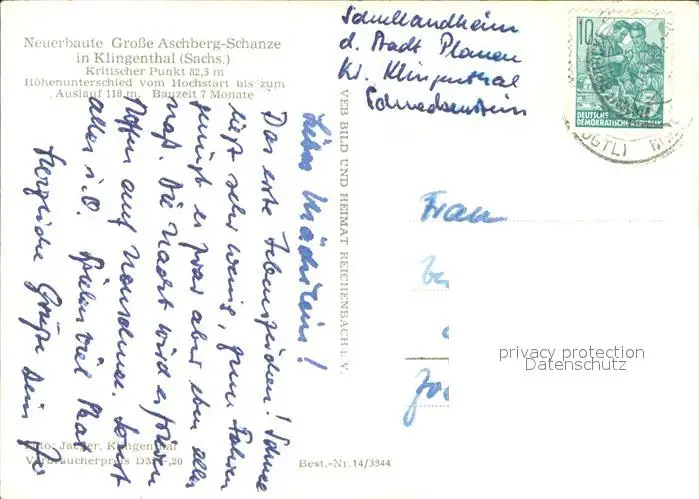 Neuerbaute Große Aschberg-Schanze
in Klingenthal (Sachs.)
Kritischer Punkt 82,5 m
Höhenunterschied vom Hochstart bis zum
Auslauf 118 m. Bauzeit 7 Monate
Schullandheim
d. Stadt Plauen
Kr. Klingenthal
Schneckenstein
10
DEUTSCHE
DEMOKRATISCHE REPUBLIK
OGTL
Liebes Mädilein!
Das erste Lebenszeichen! Schnee
liegt sehr wenig, zum Fahren
genügt es zwar aber eben alles
naß. Die Nacht wird es frieren
Hoffen auf Neuschnee. Sonst
alles i. O. Spielen viel Skat
Herzliche Grüße Dein
VEB BILD UND HEIMAT REICHENBACH i. V.
Frau
privacy protection
Datenschutz
Foto: Jaeger, Klingenthal
Verbraucherpreis DM -,20
Best.-Nr. 14/3344